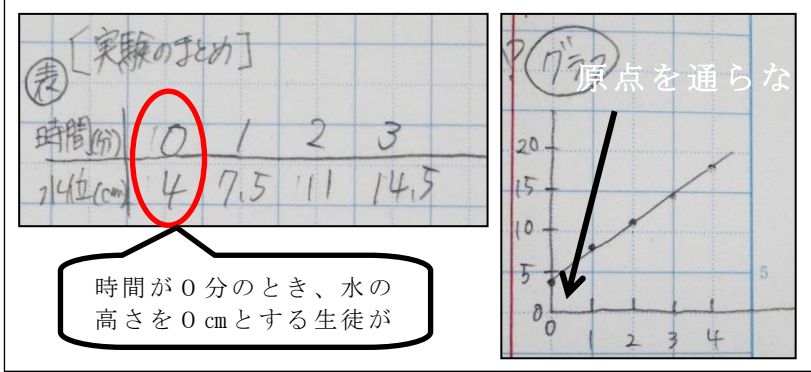 [実験のまとめ]
表
時間(分) 0 1 2 3
水位(cm) 4 7.5 11 14.5
時間が0分のとき、水の
高さを0cmとする生徒が
? グラフ
原点を通らな
20
15
10
5
0
0 1 2 3 4
5